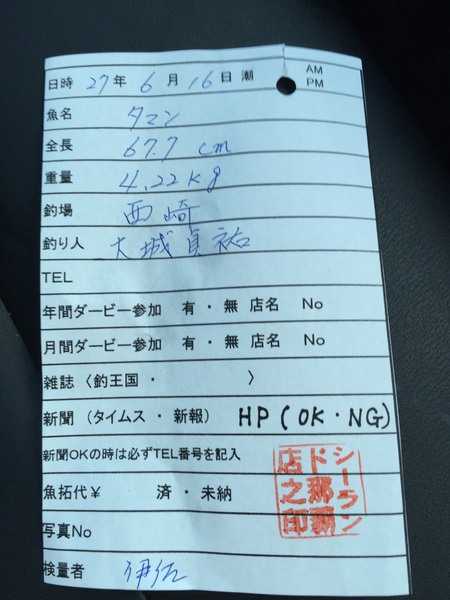 日時 27年 6月 16日 潮 AM PM
魚名 タマン
全長 67.7 cm
重量 4.22kg
釣場 西崎
釣り人 大城貞祐
TEL
年間ダービー参加 有・無 店名 No
月間ダービー参加 有・無 店名 No
雑誌〈釣王国・ 〉
新聞（タイムス・新報） HP(OK・NG)
新聞OKの時は必ずTEL番号を記入
魚拓代￥ 済・未納
シーラン
ド那覇
店之印
写真No
検量者 伊佐